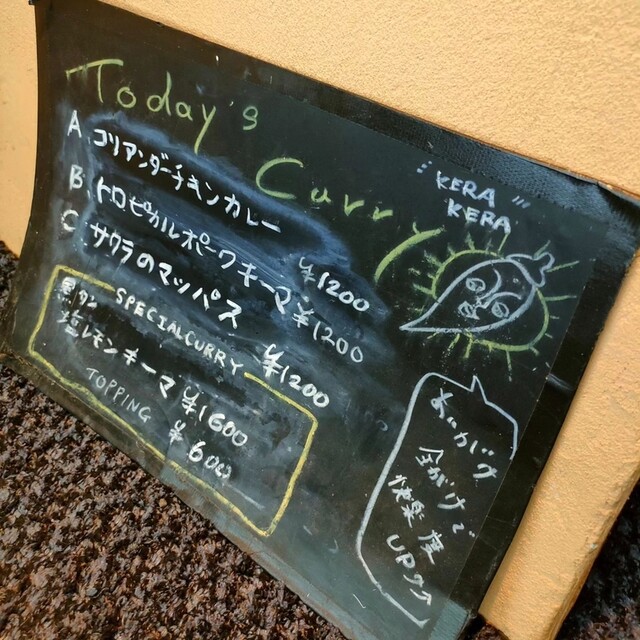 Today's
Curry
A コリアンダーチキンカレー ¥1200
B トロピカルポークキーマ ¥1200
C サクラのマッパス ¥1200
SPECIAL CURRY
塩レモンキーマ ¥1600
TOPPING ¥600
"KERA
KERA"
あいがけ
全がけで
快楽度
UP